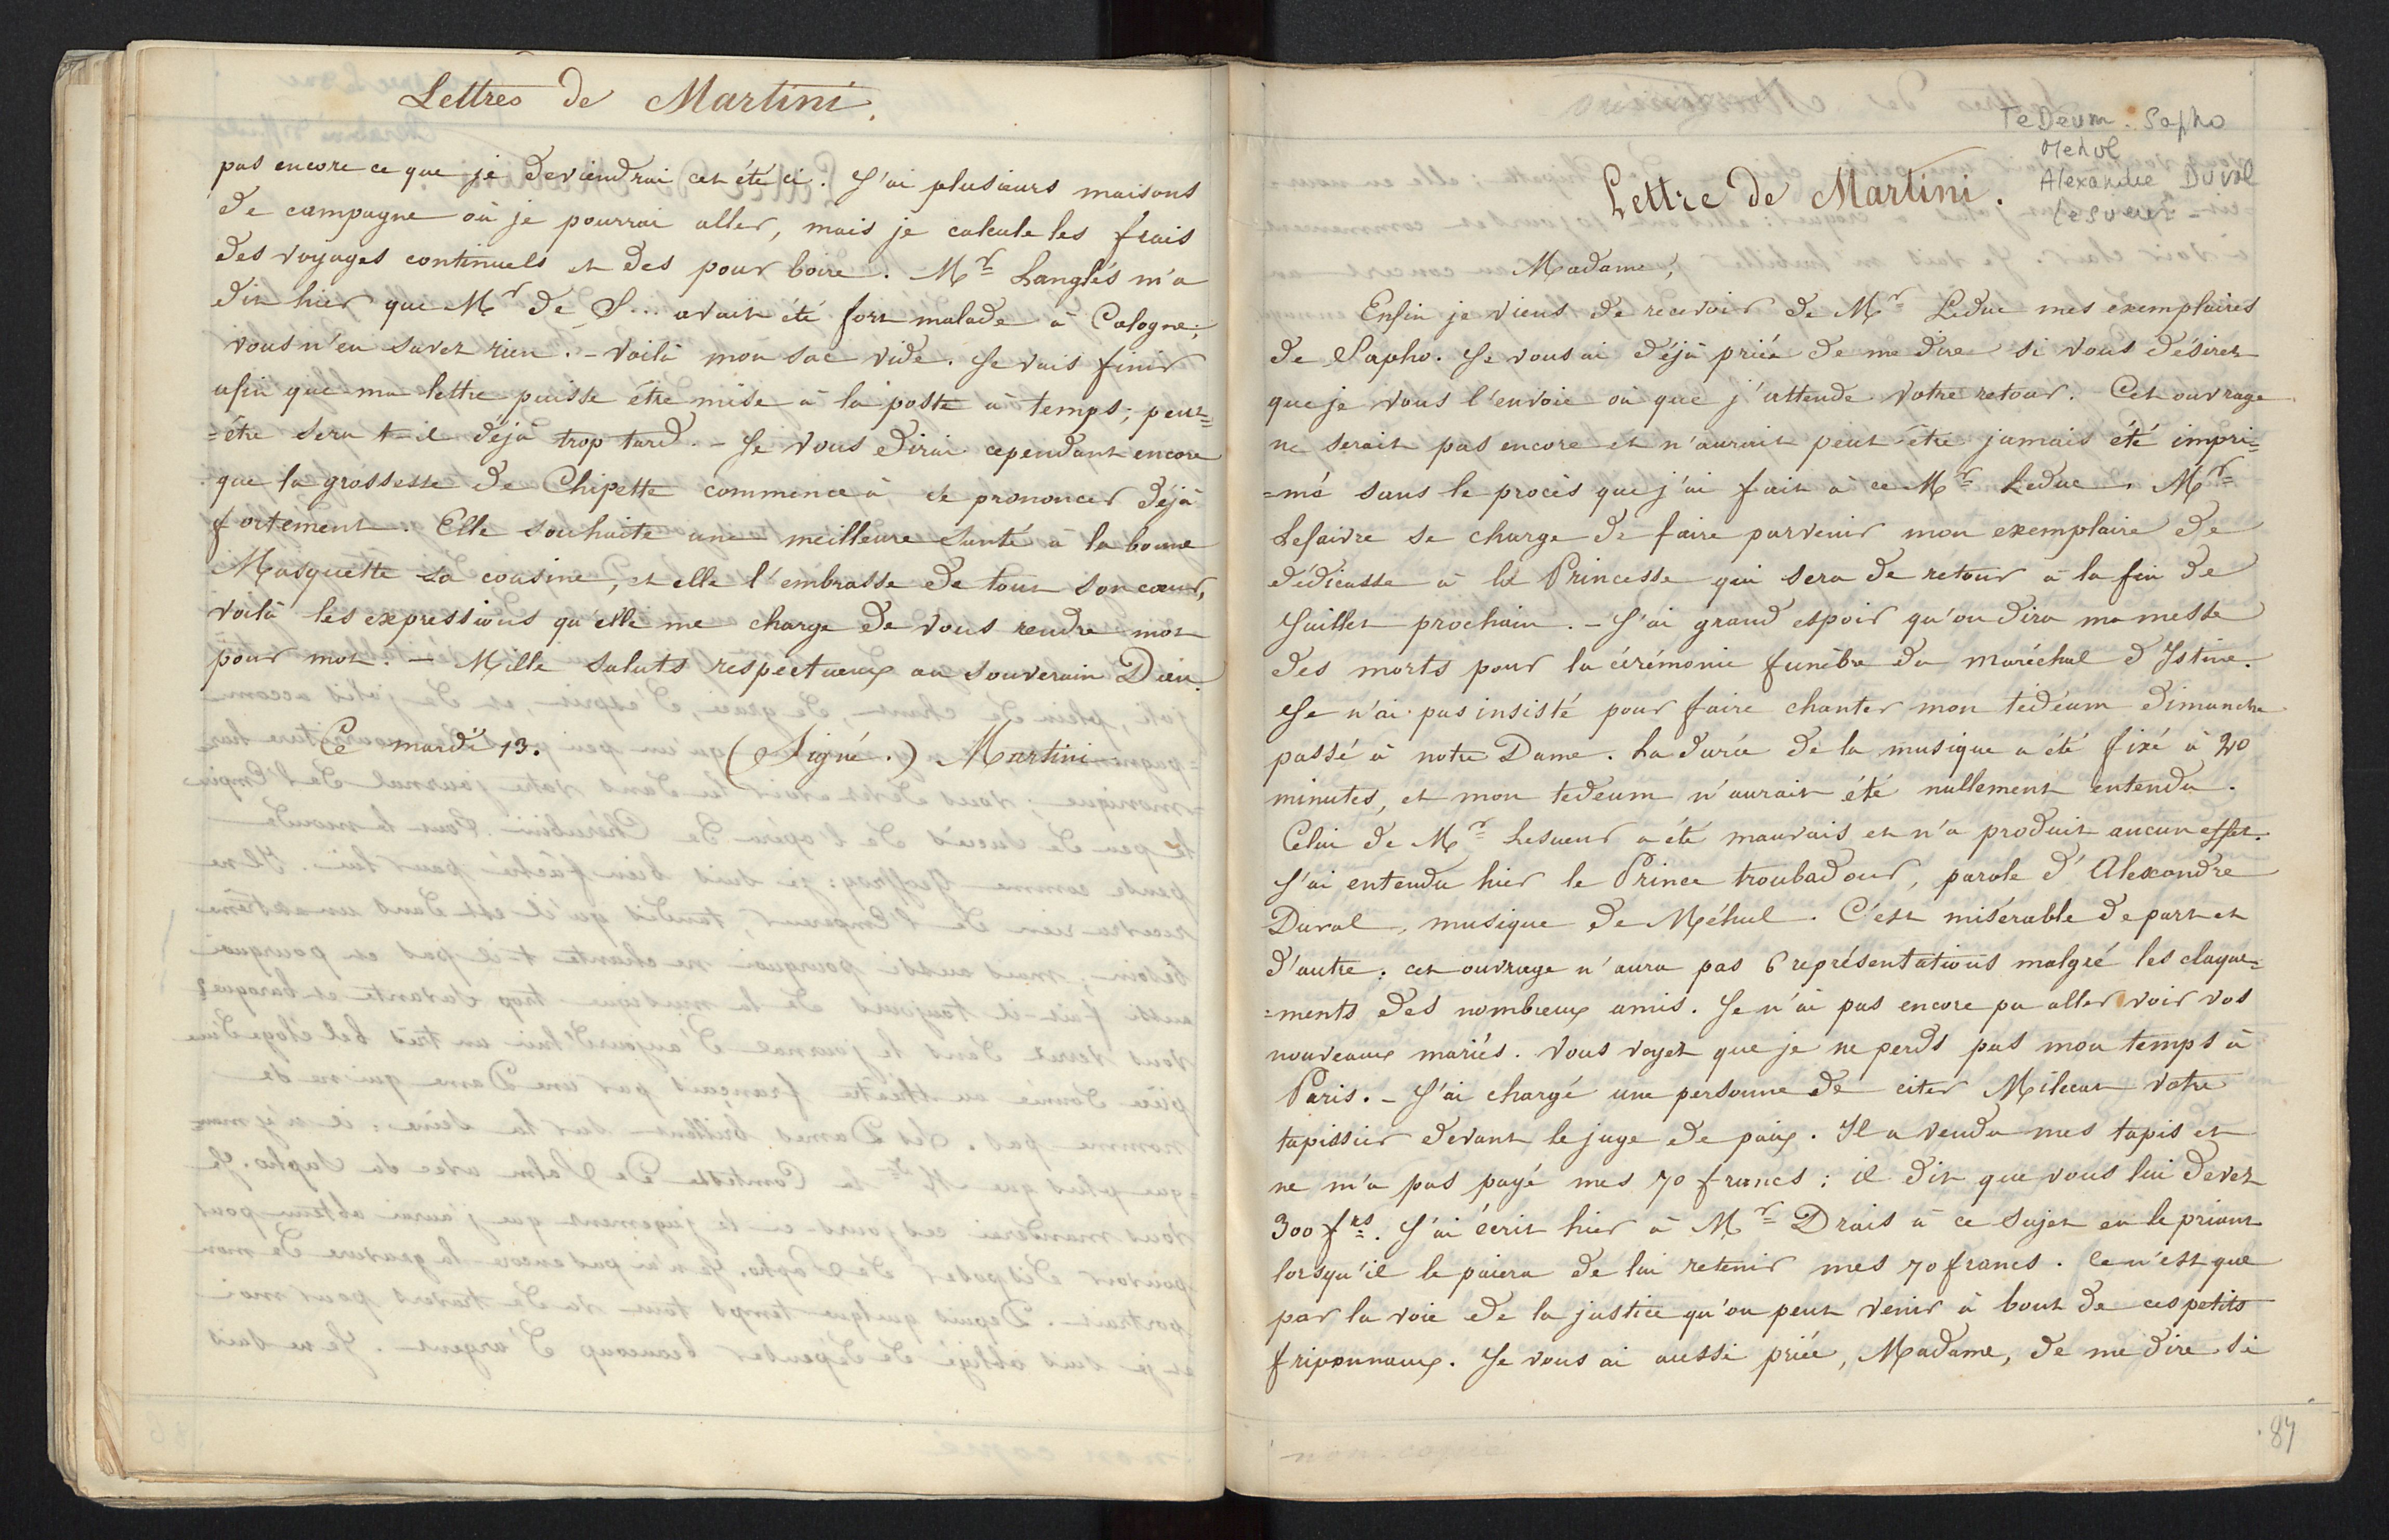 Lettres de Martini.
pas encore ce que je deviendrai cet été ci. J'ai plusieurs maisons
de campagne où je pourrai aller, mais je calcule les frais
des voyages continuels et des pour boire. Mr Langlés m'a
dit hier que Mr de S... avait été fort malade à Cologne;
vous n'en savez rien. - Voilà mon sac vide. Je vais finir
afin que ma lettre puisse être mise à la poste à temps; peut=
=être sera t-il déjà trop tard. - Je vous dirai cependant encore
que la grossesse de Chipette commence à se prononcer déjà
fortement. Elle souhaite une meilleure santé à la bonne
Masquette sa cousine, et elle l'embrasse de tout son cœur,
voilà les expressions qu'elle me charge de vous rendre mot
pour mot. - Mille saluts respectueux au souverain Dieu.
Ce mardi 13. (Signé.) Martini
TeDeum. Sapho
Mehul
Alexandre Duval
Lesueur
Lettre de Martini.
Madame,
Enfin je viens de recevoir de Mr Leduc mes exemplaires
de Sapho. Je vous ai déjà priée de me dire si vous désirez
que je vous l'envoie où que j'attende votre retour. Cet ouvrage
ne serait pas encore et n'aurait peut-être jamais été impri=
=mé sans le procès que j'ai fait à ce Mr Leduc. Mr
Lefaivre se charge de faire parvenir mon exemplaire de
dédicasse à la Princesse qui sera de retour à la fin de
Juillet prochain. - J'ai grand espoir qu'on dira ma messe
des morts pour la cérémonie funèbre du maréchal d'Istrie.
Je n'ai pas insisté pour faire chanter mon tedéum dimanche
passé à notre Dame. La durée de la musique a été fixé à 20
minutes, et mon tedeum n'aurait été nullement entendu.
Celui de Mr Lesueur a été mauvais et n'a produit aucun effet.
J'ai entendu hier le Prince troubadour, parole d'Alexandre
Duval, musique de Méhul. C'est misérable de part et
d'autre; cet ouvrage n'aura pas 6 représentations malgré les claque=
=ments des nombreux amis. Je n'ai pas encore pu aller voir vos
nouveaux mariés. Vous voyez que je ne perds pas mon temps à
Paris. - J'ai chargé une personne de citer votre
tapissier devant le juge de paix. Il a vendu mes tapis et
ne m'a pas payé mes 70 francs; il dit que vous lui devez
300 frs. J'ai écrit hier à Mr Drais à ce sujet en le priant
lorsqu'il le paiera de lui retenir mes 70 francs. Ce n'est que
par la voie de la justice qu'on peut venir à bout de ces petits
friponnaux. Je vous ai aussi priée, Madame, de me dire si
non copié
87